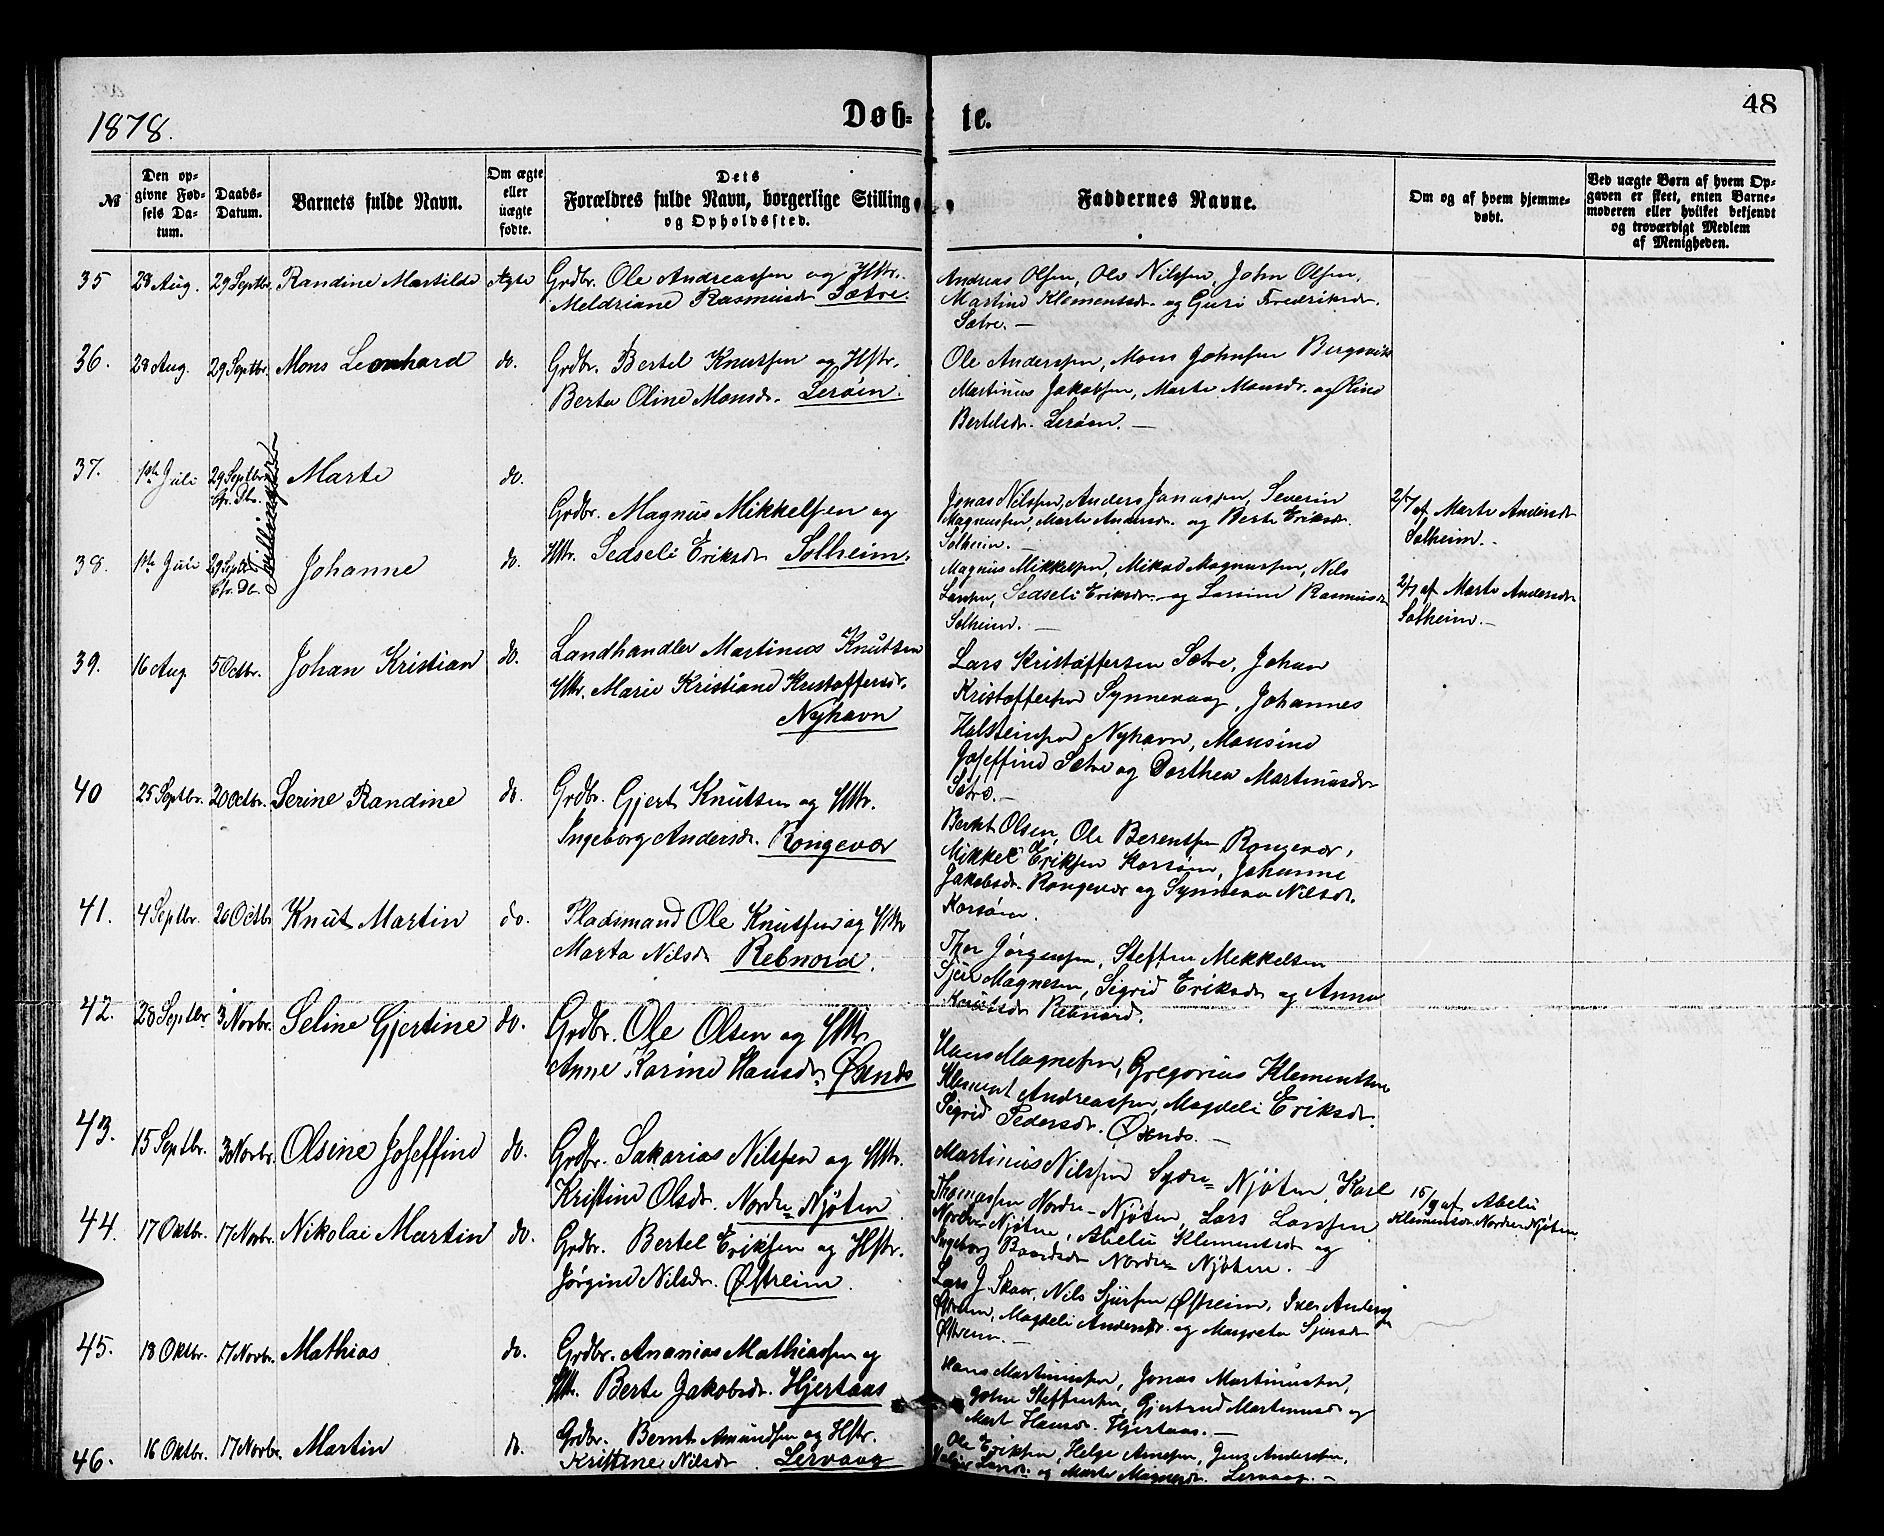 1878.
Døb-
te.
48
№
Den op-
givne Fød-
sels Da-
tum.
Daabs-
Datum.
Barnets fulde Navn.
Om ægte
eller
uægte
fødte.
Dets
Forældres fulde Navn, borgerlige Stilling
og Opholdssted.
Faddernes Navne.
Om og af hvem hjemme-
døbt.
Ved uægte Børn af hvem Op-
gaven er skeet, enten Barne-
moderen eller hvilket bekjendt
og troværdigt Medlem
af Menigheden.
35 28 Aug. 29 Septbr. Randine Martilde Ægte Grdbr. Ole Andreassen og Hstr.
Meldriane Rasmusdr Sætre.
Andreas Olsen, Ole Nilssen, John Olsen,
Martine Klementsdr. og Guri Fredriksdr.
Sætre. —
36. 28 Aug. 29 Septbr. Mons Leonhard do. Grdbr. Bertel Knutsen og Hstr.
Berta Oline Monsdr. Lerøen.
Ole Anderssen, Mons Johnsen Bergsvik
Martinus Jakobsen, Marte Monsdr. og Oline
Bertelsdr. Lerøen. —
37. 1ste Juli 29 Septbr. Marte do.
Tvillinger
Grdbr. Magnus Mikkelsen og
Hstr. Sedseli Eriksdr Solheim.
Jonas Nilssen, Anders Janussen, Severin
Magnussen, Marte Andersdr. og Berte Eriksdr.
Solheim. —
2/7 af Marte Andersdr
Solheim. -
38. 1ste Juli 29 Septbr. Johanne do.
Magnus Mikkelsen, Mikal Magnussen, Nils
Larsen, Sedseli Eriksdr. og Larsine Rasmusdr
Solheim. —
2/7 af Marte Andersdr
Solheim. -
39. 16 Aug 5 Octbr. Johan Kristian do. Landhandler Martinus Knutsen
Hstr. Marie Kristiane Kristoffersdr.
Nyhavn
Lars Kristoffersen Sætre, Johan
Kristoffersen Synnevaag, Johannes
Halsteinsen Nyhavn, Monsine
Joseffine Sætre og Dorthea Martinusdr
Sætre. -
40 25 Septbr. 20 Octbr. Serine Randine do. Grdbr. Gjert Knutsen og Hstr.
Ingeborg Andersdr. Rongevær
Olsen, Ole Berentsen Rongevær,
Mikkel Eriksen Korsøen, Johanne
Jakobsdr. Rongevær og Synneva Nilsdr.
Korsøen.
41. 4 Septbr. 20 Octbr Knut Martin do. Pladsmand Ole Knutsen og Hstr
Marta Nilsdr Rebnord.
Thor Jørgensen, Steffen Mekkelsen
Sjur Magnesen, Sigrid Eriksdr og Anna
Knutsdr Rebnord.
42. 28 Septbr 3 Novbr. Seline Gjertine do. Grdbr. Ole Olsen og Hstr
Anne Karine Hansdr. Øxnes
Hans Magnesen, Gregorius Klementsen
Klement Andreassen, Magdeli Eriksdr.
Sigrid Pedersdr. Øxnes. —
43. 15 Septbr. 3 Novbr. Olsine Joseffine do. Grdbr. Sakarias Nilsen og Hstr.
Kristine Olsdr. Nordre Njøten
Martinus Nilssen Sydre Njøten, Karl
Thomassen Nordre-Njøten, Lars Larssen
Nordre Njøten, Abelu Klementsdr og
Ingeborg Baardsdr Nordre Njøten. -
15/9 af Abelu
Klementsdr Nordre Njøten.
44. 17 Oktbr. 17 Novbr. Nikolai Martin do. Grdbr. Bertel Eriksen og Hstr.
Jørgine Nilsdr. Østreim.
Lars J. Skaar, Nils Sjursen Østreim, Iver Anders
Østreim, Magdeli Andersdr. og Margreta Sjursdr
Østreim —
45. 13 Oktbr. 17 Novbr. Mathias do. Grdbr. Ananias Mathiassen og
Hstr. Berte Jakobsdr. Hjertaas
Hans Martinussen, Jonas Martinussen,
Steffensen, Gjertrud Martinusdr og
Hansdr. Hjertaas. —
46. 16 Oktbr. 17 Novbr. Martin do. Grdbr. Bernt Amundsen og Hstr.
Kristine Nilsdr Lervaag
Ole Eriksen, Helge Arnesen, Jens Anderssen,
Larsdr. og Marte Magnesdr. Lervaag. -